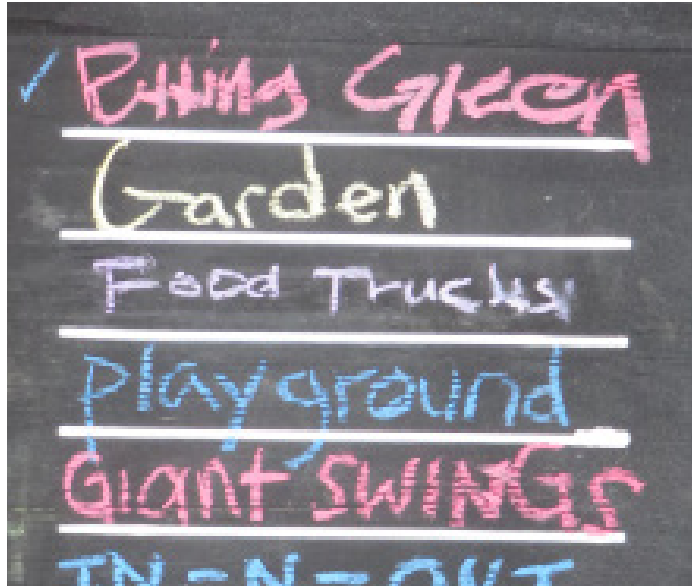 Putting Green
Garden
Food Trucks
playground
Giant SWINGS
IN-N-OUT